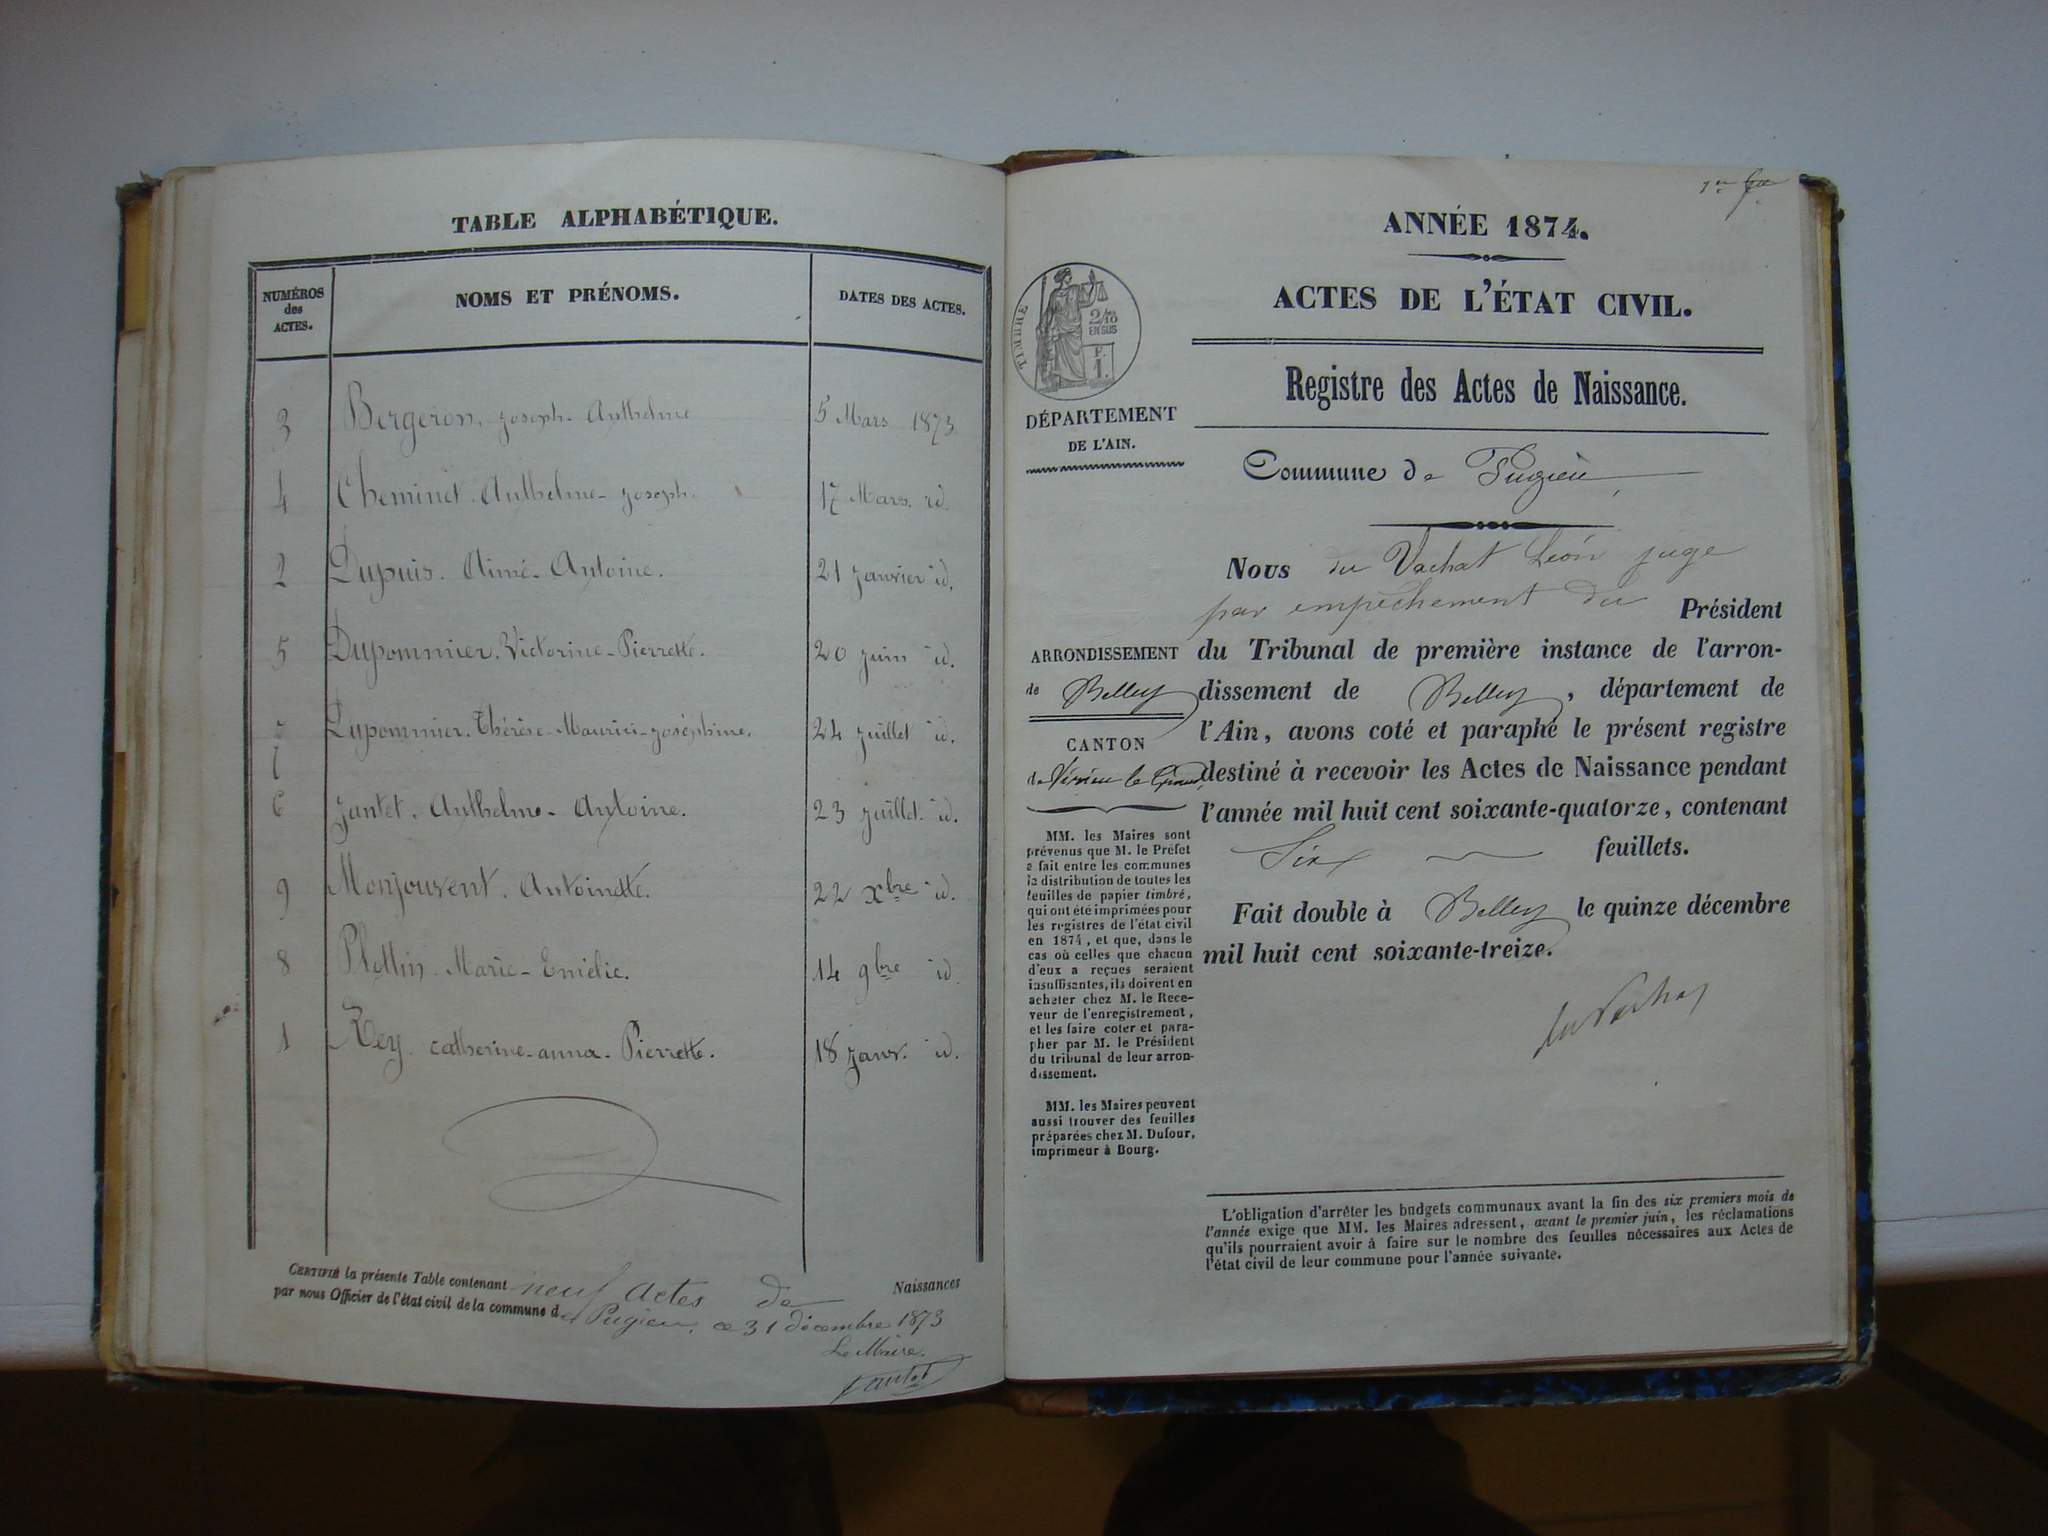 TABLE ALPHABÉTIQUE.
NUMÉROS des ACTES. NOMS ET PRÉNOMS. DATES DES ACTES.
3 Bergeron, Joseph-Anthelme 5 Mars 1873
4 Cheminet. Anthelme-Joseph. 17 Mars. id.
2 Dupuis. Aimé-Antoine. 21 Janvier id.
5 Dupommier. Victorine-Pierrette. 20 Juin id.
7 Dupommier. Thérèse-Maurici-Joséphine. 24 Juillet id.
6 Jantet. Anthelme-Antoine. 23 Juillet. id.
9 Monjouvent. Antoinette. 22 Xbre id.
8 Marie-Emélie. 14 9bre id.
1 Rey. Catherine-anna-Pierrette. 18 Janv. id.
CERTIFIÉ la présente Table contenant neuf actes de Naissances
par nous Officier de l'état civil de la commune d de Pugieu, ce 31 décembre 1873
Le Maire.
Jantet
1er
ANNÉE 1874.
ACTES DE L'ÉTAT CIVIL.
TIMBRE
2/10
EN SUS
F.
1.
Registre des Actes de Naissance.
DÉPARTEMENT
DE L'AIN.
Commune de Pugieu
Nous du Vachat Léon juge
par empêchement du Président
du Tribunal de première instance de l'arron-
dissement de Belley, département de
l'Ain, avons coté et paraphé le présent registre
destiné à recevoir les Actes de Naissance pendant
l'année mil huit cent soixante-quatorze, contenant
Six feuillets.
Fait double à Belley le quinze décembre
mil huit cent soixante-treize.
du Vachat
ARRONDISSEMENT
de Belley
CANTON
de Virieu le Grand
MM. les Maires sont
prévenus que M. le Préfet
a fait entre les communes
la distribution de toutes les
feuilles de papier timbré,
qui ont été imprimées pour
les registres de l'état civil
en 1874, et que, dans le
cas où celles que chacun
d'eux a reçues seraient
insuffisantes, ils doivent en
acheter chez M. le Rece-
veur de l'enregistrement,
et les faire coter et para-
pher par M. le Président
du tribunal de leur arron-
dissement.
MM. les Maires peuvent
aussi trouver des feuilles
préparées chez M. Dufour,
imprimeur à Bourg.
L'obligation d'arrêter les budgets communaux avant la fin des six premiers mois de
l'année exige que MM. les Maires adressent, avant le premier juin, les réclamations
qu'ils pourraient avoir à faire sur le nombre des feuilles nécessaires aux Actes de
l'état civil de leur commune pour l'année suivante.